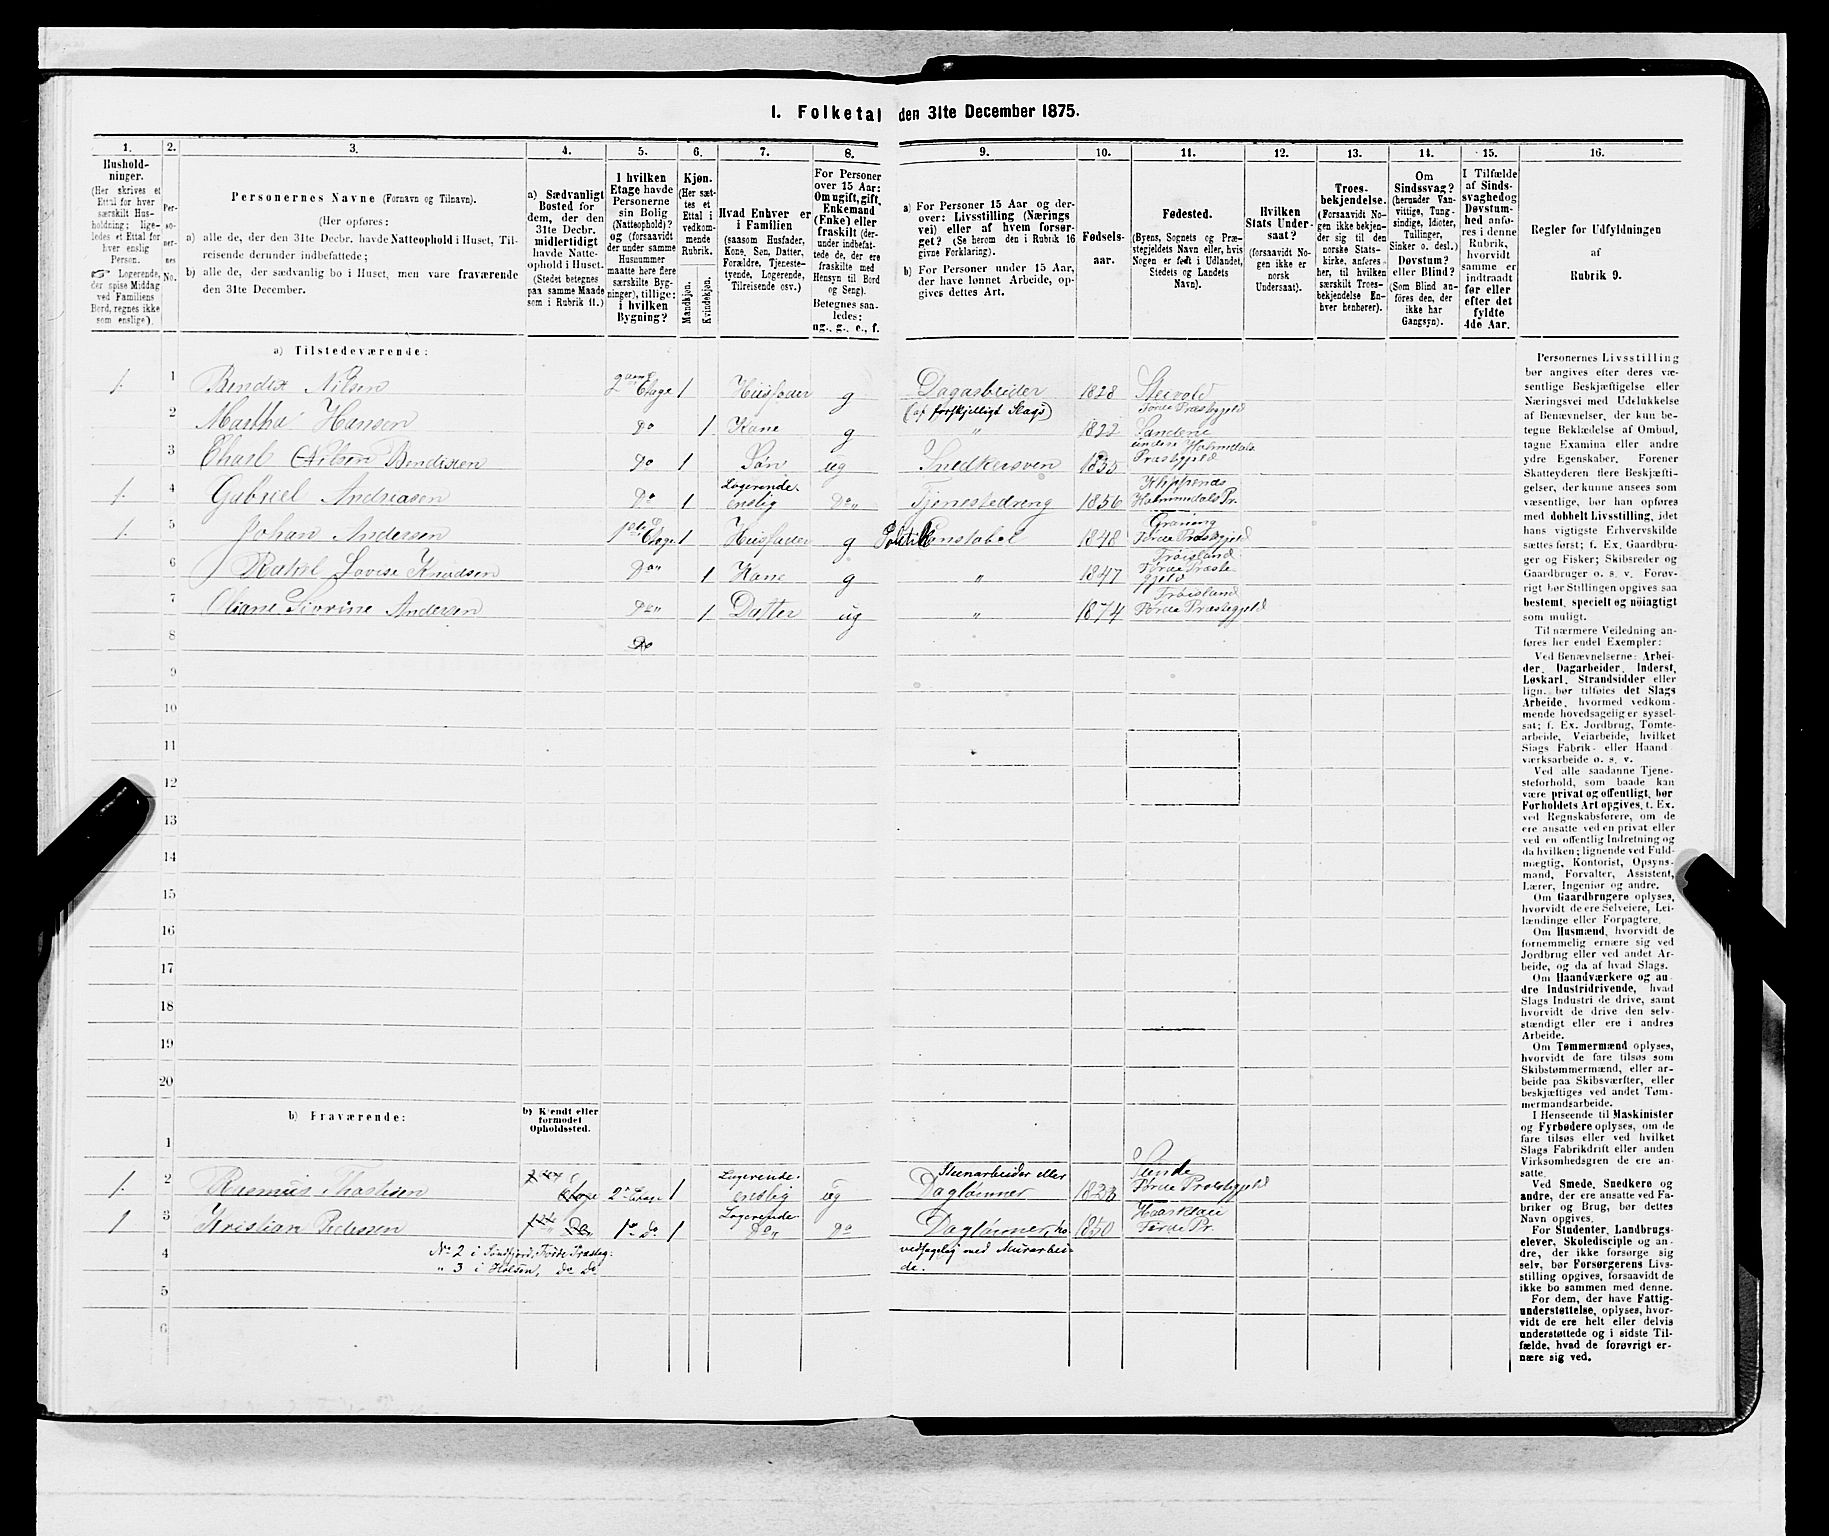 I. Folketal den 31te December 1875.
1.
Hushold-
ninger.
(Her skrives et
Ettal for hver
særskilt Hus-
holdning; lige-
ledes et Ettal for
hver enslig
Person.
Logerende,
der spise Middag
ved Familiens
Bord, regnes ikke
som enslige).
2.
Per-
so-
ner-
nes
No.
3.
Personernes Navne (Fornavn og Tilnavn).
(Her opføres:
a) alle de, der den 31te Decbr. havde Natteophold i Huset, Til-
reisende derunder indbefattede;
b) alle de, der sædvanlig bo i Huset, men vare fraværende
den 31te December.
4.
a) Sædvanligt
Bosted for
dem, der den
31te Decbr.
midlertidigt
havde Natte-
ophold i Huset.
(Stedet betegnes
paa samme Maade
som i Rubrik 11.)
5.
I hvilken
Etage havde
Personerne
sin Bolig
(Natteophold)?
og (forsaavidt
der under samme
Husnummer
maatte høre flere
særskilte Byg-
ninger), tillige:
i hvilken
Bygning?
6.
Kjøn.
(Her sæt-
tes et
Ettal i
vedkom-
mende
Rubrik.
Mandkjøn.
Kvindekjøn.
7.
Hvad Enhver er
i Familien
(saasom Husfader,
Kone, Søn, Datter,
Forældre, Tjeneste-
tyende, Logerende,
Tilreisende osv.)
8.
For Personer
over 15 Aar:
Om ugift, gift,
Enkemand
(Enke) eller
fraskilt (der-
under indbefat-
tede de, der ere
fraskilte med
Hensyn til Bord
og Seng).
Betegnes saa-
ledes:
ug., g., e., f.
9.
a) For Personer 15 Aar og der-
over: Livsstilling (Nærings
vei) eller af hvem forsør-
get? (Se herom den i Rubrik 16
givne Forklaring).
b) For Personer under 15 Aar,
der have lønnet Arbeide, op-
gives dettes Art.
10.
Fødsels-
aar.
11.
Fødested.
(Byens, Sognets og Præ-
stegjeldets Navn eller, hvis
Nogen er født i Udlandet,
Stedets og Landets
Navn).
12.
Hvilken
Stats Under-
saat?
(forsaavidt No-
gen ikke er
norsk
Undersaat).
13.
Troes-
bekjendelse.
(Forsaavidt No-
gen ikke bekjen-
der sig til den
norske Stats-
kirke, anføres-
her, til hvilken
særskilt Troes-
bekjendelse En-
hver henhører).
14.
Om
Sindssvag?
(herunder Van-
vittige, Tung-
sindige, Idioter,
Tullinger,
Sinker o. desl.)
Døvstum?
eller Blind?
(Som Blind an-
føres den, der
ikke har
Gangsyn).
15.
I Tilfælde
af Sinds-
svaghed og
Døvstum-
hed anfø-
res i denne
Rubrik,
hvorvidt
samme er
indtraadt
før eller
efter det
fyldte
4de Aar.
16.
Regler for Udfyldningen
af
Rubrik 9.
a) Tilstedeværende:
1. 1 Bendix Nilsen 2 Etage 1 Husfader g Dagarbeider 1828
(af forskjelligt Slags) Førde Præstegjeld
2 Martha Hansen Do 1 Kone g " 1822 Sandene
under Holmedals
3 Nilsen Bendixen Do 1 Søn ug Snedkersven 1855 Præstgjeld
Logerende.
1. 4 Gabriel Andreasen Do 1 enslig Do" Tjenestedreng 1856
1. 5 Johan Andersen 1ste Etage 1 Husfader g Politi Konstabel 1848 Førde Præstegjeld
6 Rakel Lovise Knudsen Do" 1 Kone g " 1847 Førde Præste-
gjeld
7 Oliane Sivrine Andersen Do" 1 Datter ug " 1874 Førde Præstegjeld
8 Do
9
10
11
12
13
14
15
16
17
18
19
20
b) Fraværende:
b) Kjendt eller
formodet
Opholdssted.
1
Logerende. Stenarbeider eller Sunde
1. 2 Rasmus Etage 2 Etage 1 enslig ug Daglønner Førde Præstegjeld
Logerende
1 3 Kristian Pedersen Do 1 Do 1 Do" Do Daglønner, ho- 1850 Førde Pr.
4 No 2 i Søndfjord, Førde Præsteg: vedsagelig med Murarbei-
" 3 i Holsen, Do Do de.
5
6
Personernes Livsstilling
bør angives efter deres væ-
sentlige Beskjæftigelse eller
Næringsvei med Udelukkelse
af Benævnelser, der kun be-
tegne Beklædelse af Ombud,
tagne Examina eller andre
ydre Egenskaber. Forener
Skatteyderen flere Beskjæfti-
gelser, der kunne ansees som
væsentlige, bør han opføres
med dobbelt Livsstilling, idet
hans vigtigste Erhvervskilde
sættes først; f. Ex. Gaardbru-
ger og Fisker; Skibsreder og
Gaardbruger o. s. v. Forøv-
rigt bør Stillingen opgives saa
bestemt, specielt og nöiagtigt
som muligt.
Til nærmere Veiledning an-
føres her endel Exempler:
Ved Benævnelserne: Arbei-
der, Dagarbeider, Inderst,
Løskarl, Strandsidder eller
lign. bør tilføies det Slags
Arbeide, hvormed vedkom-
mende hovedsagelig er syssel-
sat; f. Ex. Jordbrug, Tomte-
arbeide, Veiarbeide, hvilket
Slags Fabrik- eller Haand-
værksarbeide o. s. v.
Ved alle saadanne Tjene-
steforhold, som baade kan
være privat og offentligt, bør
Forholdets Art opgives, f. Ex.
ved Regnskabsførere, om de
ere ansatte ved en privat eller
ved en offentlig Indretning og
da hvilken; lignende ved Fuld-
mægtig, Kontorist, Opsyns-
mand, Forvalter, Assistent,
Lærer, Ingeniør og andre.
Om Gaardbrugere oplyses,
hvorvidt de ere Selveiere, Lei-
lændinge eller Forpagtere.
Om Husmænd, hvorvidt de
fornemmelig ernære sig ved
Jordbrug eller ved andet Ar-
beide, og da af hvad Slags.
Om Haandværkere og an-
dre Industridrivende, hvad
Slags Industri de drive, samt
hvorvidt de drive den selv-
stændigt eller ere i andres
Arbeide.
Om Tømmermænd oplyses,
hvorvidt de fare tilsøs som
Skibstømmermænd, eller ar-
beide paa Skibsværfter, eller
beskjæftiges ved andet Tøm-
mermandsarbeide.
I Henseende til Maskinister
og Fyrbødere oplyses, om de
fare tilsøs eller ved hvilket
Slags Fabrikdrift eller anden
Virksomhedsgren de ere an-
satte.
Ved Smede, Snedkere og
andre, der ere ansatte ved Fa-
briker og Brug, bør dettes
Navn opgives.
For Studenter, Landbrugs-
elever, Skoledisciple og an-
dre, der ikke forsørge sig
selv, bør Forsørgerens Livs-
stilling opgives, forsaavidt de
ikke bo sammen med denne.
For dem, der have Fattig-
understøttelse, oplyses, hvor-
vidt de ere helt eller delvis
understøttede og i sidste Til-
fælde, hvad de forøvrigt er-
nære sig ved.